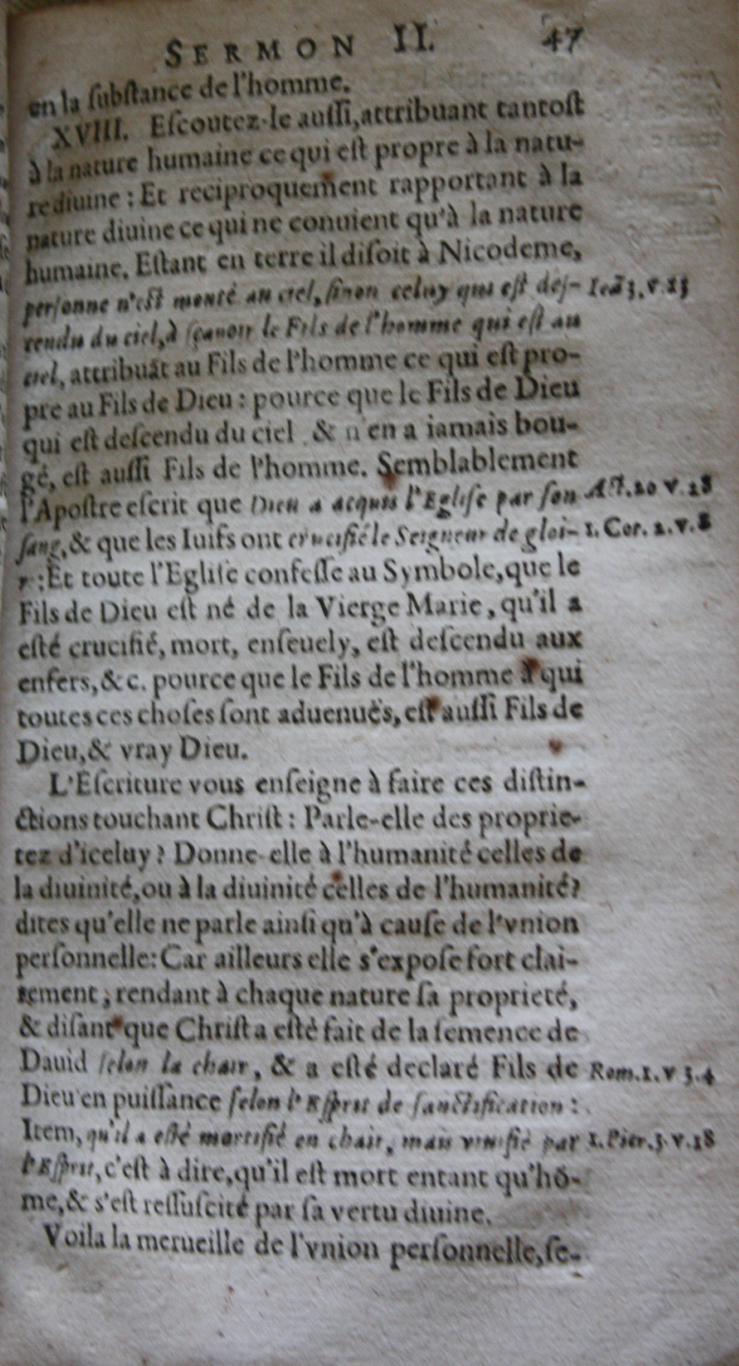 SERMON II. 47
en la ſubſtance de l'homme.
XVIII. Eſcoutez-le auſſi, attribuant tantoſt
à la nature humaine ce qui eſt propre à la natu-
re diuine : Et reciproquement rapportant à la
nature diuine ce qui ne conuient qu'à la nature
humaine. Eſtant en terre il diſoit à Nicodeme,
perſonne n'eſt monté au ciel, ſinon celuy qui eſt deſ- Ieā 3. v. 13
cendu du ciel, à ſçauoir le Fils de l'homme qui eſt au
ciel, attribuāt au Fils de l'homme ce qui eſt pro-
pre au Fils de Dieu : pource que le Fils de Dieu
qui eſt deſcendu du ciel & n'en a iamais bou-
gé, eſt auſſi Fils de l'homme. Semblablement
l'Apoſtre eſcrit que Dieu a acquis l'Egliſe par ſon Act. 20 v. 28
ſang, & que les Iuifs ont crucifié le Seigneur de gloi- 1. Cor. 2. v. 8
re : Et toute l'Egliſe confeſſe au Symbole, que le
Fils de Dieu eſt né de la Vierge Marie, qu'il a
eſté crucifié, mort, enſeuely, eſt deſcendu aux
enfers, &c. pource que le Fils de l'homme à qui
toutes ces choſes ſont aduenuës, eſt auſſi Fils de
Dieu, & vray Dieu.
L'Eſcriture vous enſeigne à faire ces diſtin-
ctions touchant Chriſt : Parle-elle des proprie-
tez d'iceluy ? Donne-elle à l'humanité celles de
la diuinité, ou à la diuinité celles de l'humanité?
dites qu'elle ne parle ainſi qu'à cauſe de l'vnion
perſonnelle : Car ailleurs elle s'expoſe fort clai-
rement ; rendant à chaque nature ſa proprieté,
& diſant que Chriſt a eſté fait de la ſemence de
Dauid ſelon la chair, & a eſté declaré Fils de Rom. 1. v 3. 4
Dieu en puiſſance ſelon l'Eſprit de ſanctification :
Item, qu'il a eſté mortifié en chair, mais viuifié par 1. Pier. 3. v. 18
l'Eſprit, c'eſt à dire, qu'il eſt mort entant qu'hō-
me, & s'eſt reſſuſcité par ſa vertu diuine.
Voila la merueille de l'vnion perſonnelle, ſe-